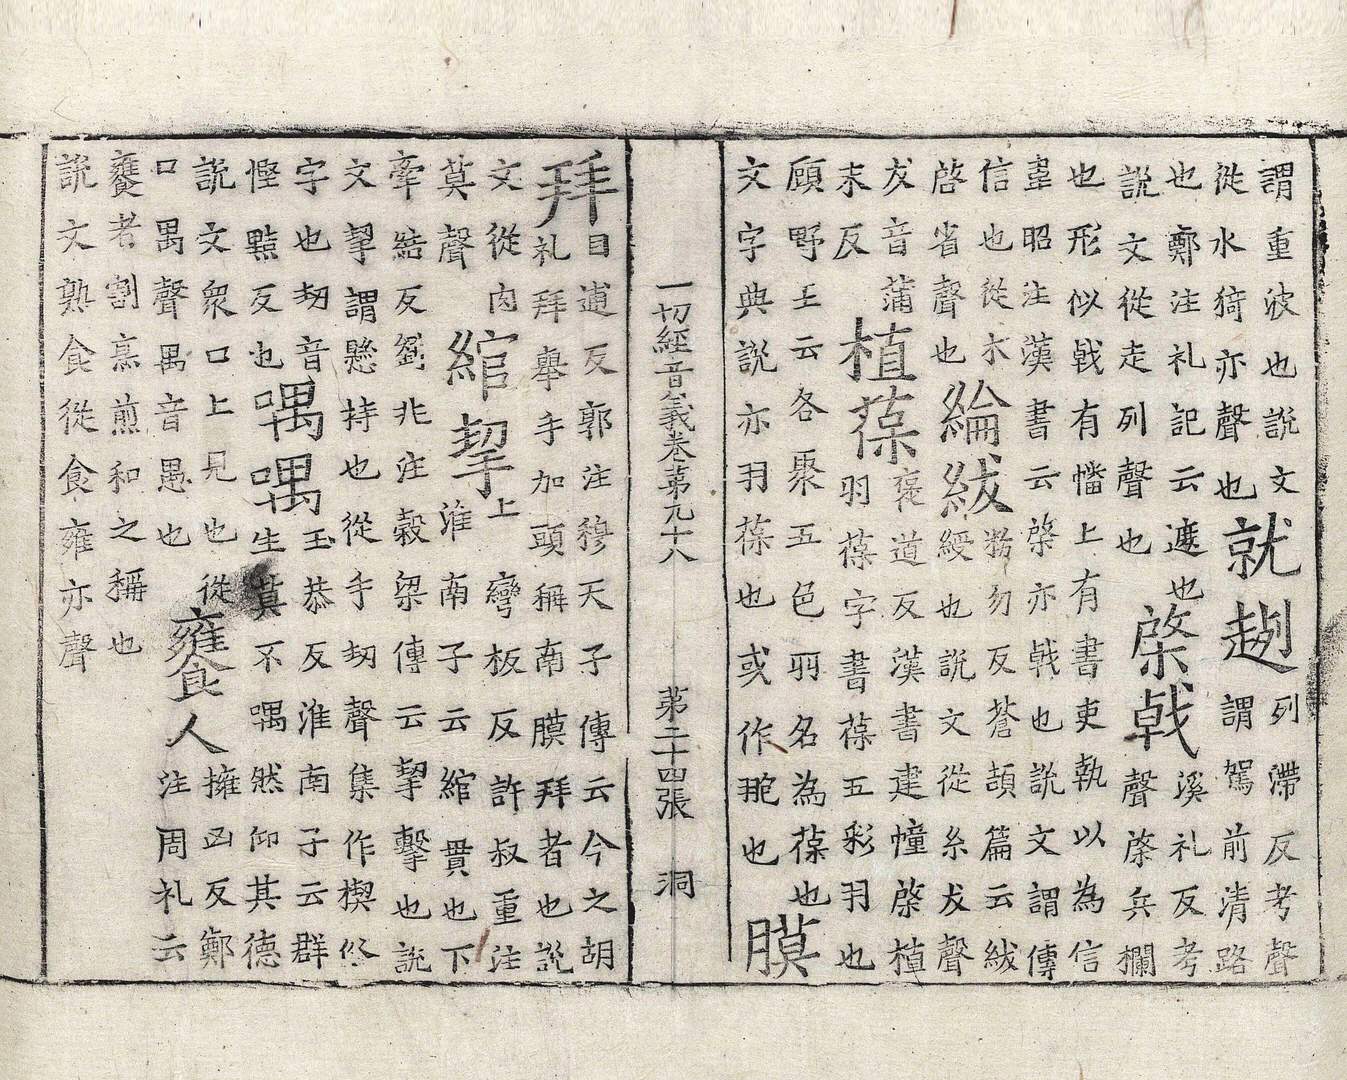 謂重波也說文
從水猗亦聲也
就趔
列滯反考聲
謂駕前清路
也鄭注礼記云遮也
說文從走列聲也
棨戟
溪礼反考
聲棨兵欄
也形似戟有幡上有書吏執以為信
韋昭注漢書云棨亦戟也說文謂傳
信也從木
啓省聲也
綸紱
拂勿反蒼頡篇云紱
綬也說文從糸犮聲
犮音蒲
末反
植葆
襃道反漢書建幢棨植
羽葆字書葆五彩羽也
顧野王云各聚五色羽名為葆也
文字典說亦羽葆也或作也
膜
一切經音義卷第九十八 第二十四張 洞
拜
目逋反郭注穆天子傳云今之胡
礼拜舉手加頭稱南膜拜者也說
文從肉
莫聲
綰挈
上彎板反許叔重注
淮南子云綰貫也下
牽結反劉兆注穀梁傳云挈擊也說
文挈謂懸持也從手㓞聲集作楔俗
字也㓞音
慳黠反也
喁喁
玉恭反淮南子云群
生莫不喁然仰其德
說文衆口上見也從
口禺聲禺音愚也
饔人
擁凶反鄭
注周礼云
饔者割烹煎和之稱也
說文熟食從食雍亦聲